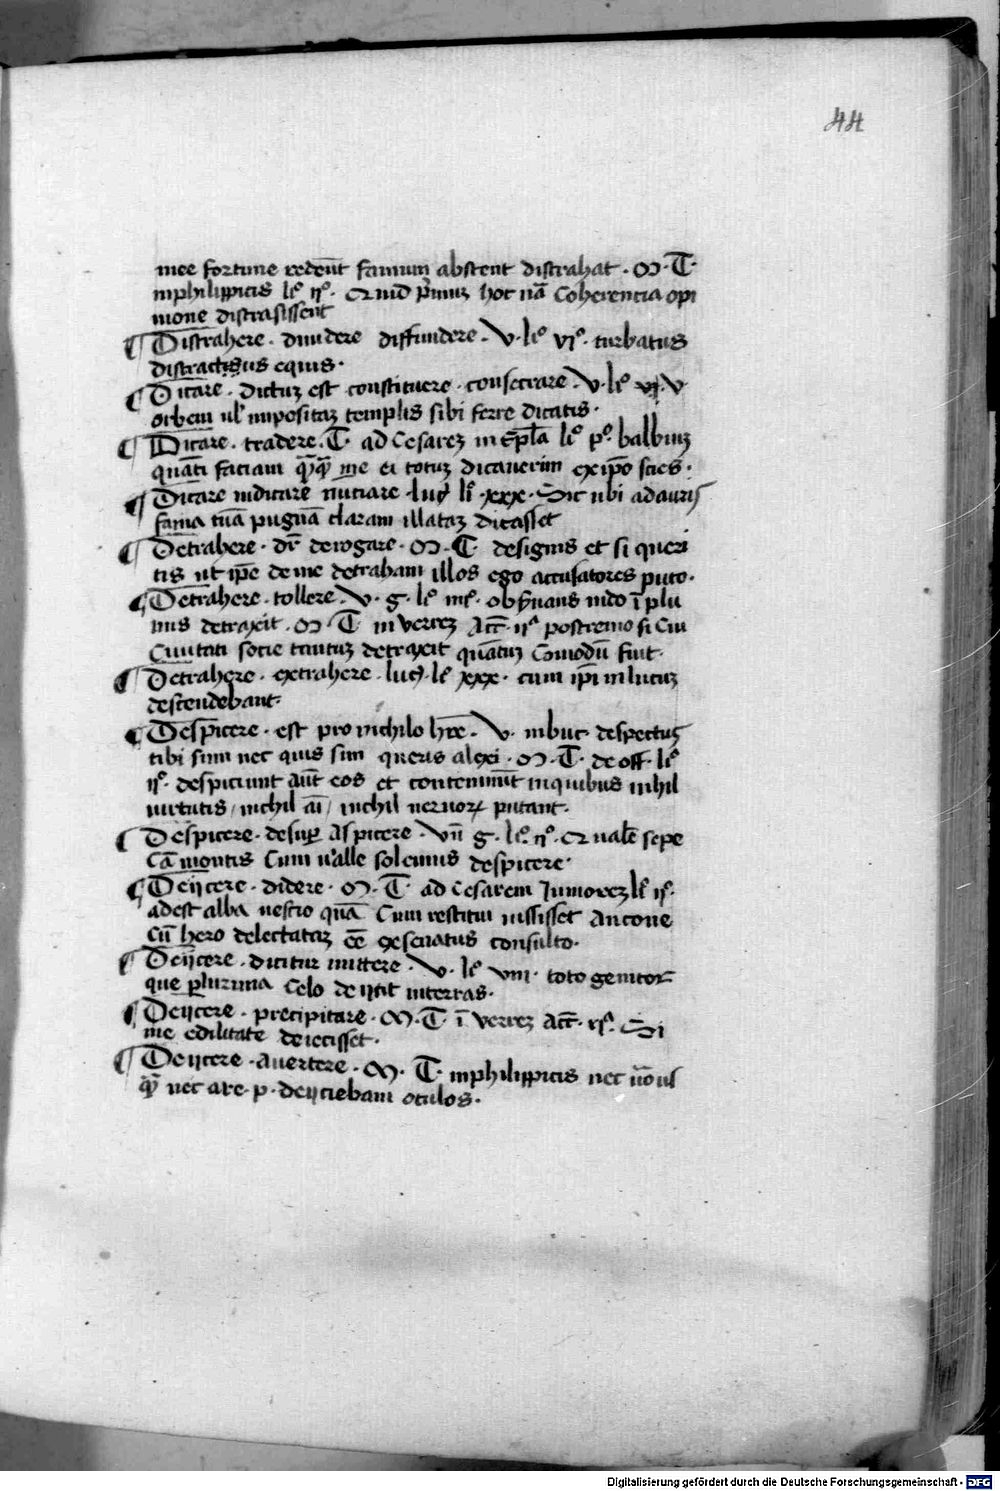 44
mee fortune redeūt famum abstent distrahat · M · T ·
inphilippicis lº ijº · Quid pͥmuz hoc nā Coherencia opi
nione distrasissent
¶ Distrahere · diuidere diffundere · V · liº vjº · turbatus
distractisus equis ·
¶ Dicare · dictuz est constituere · consecrare · V · liº vj · v
orbem ul' impositaz templis sibi ferre dicatis ·
¶ Dicare · tradere · T · ad Cesarez in Ep̄la liº pº · balbuz
quāti faciam q̄q̄ me ei totuz dicauerim exip̄o scies ·
¶ Dicare indicare nuciare · luc' li · xxx · Sic ubi adauris
fama tuā pugnā claram illataz dicasset
¶ Detrahere · dr̄ derogare · M · T · designis et si queri
tis ut ip̄e deme detraham illos ego accusatores puto ·
¶ Detrahere · tollere · V · g · lº iiiº · nido ī plu
mis detraxit · M · T · in verrez Acc̄ · ijª postremo si Ciu
Ciuitati socie tantuz detraxit quātuz Comodū fuit ·
¶ Detrahere · extrahere · luc' · lº xxx · cum ip̄i inlucuz
descendebant ·
¶ Despicere · est pro nichilo hr̄e · V · inbuc · despectus
tibi sum nec quis sim queris alexi · M · T · de off · liº
ijº · despiciunt aūt eos et contemnūt inquibus nihil
uirtutis / nichil ai / nichil neruoꝝ putant ·
¶ Despicere · desuꝑ Aspicere · Vn̄ g · lº · ijº · Et uale sepe
Cā montis Cum ualle solemus despicere ·
¶ Deijcere · didere · M · T · ad Cesarem Iuniorez lº ijº ·
adest alba nescio quā Cum restitui iussisset Ancone
Cū hero delectataz eē senatus consulto ·
¶ Deijcere · dicitur mittere · V · lº viii · toto genitor
que ꝑlurima Celo de ijcit interras ·
¶ Deijcere · precipitare · M · T · ī verrez Acc̄ · ijª · Si
me edilitate deiecisset ·
¶ Deijcere · auertere · M · T · inphilippicis nec
q̄ nec are · p · deijciebam oculos ·
Digitalisierung gefördert durch die Deutsche Forschungsgemeinschaft - DFG